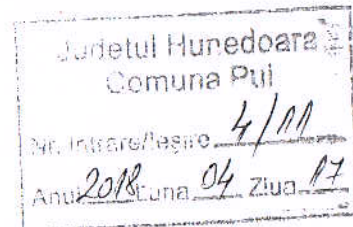 Judetul Hunedoara
Comuna Pui
Nr. Intrare/Ieşire 4/11
Anul 2018 Luna 04 Ziua 17